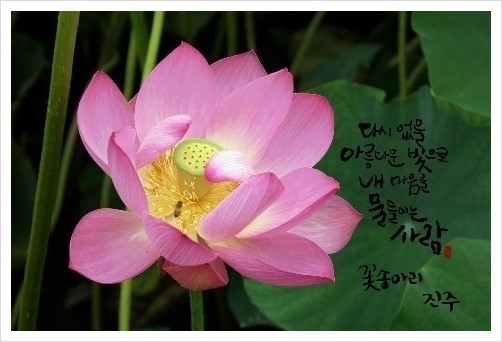 다시 없을
아름다운 빛으로
내 마음을
물들이는
사람
꽃송아리
진주